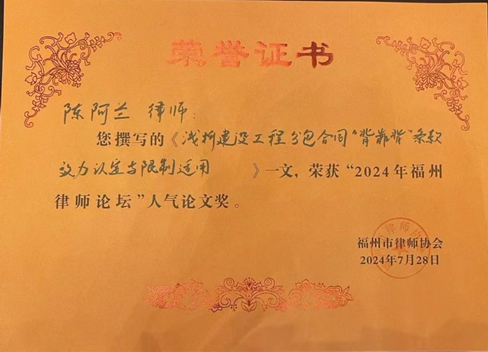 荣誉证书
陈阿兰 律师：
您撰写的《浅析建设工程分包合同“背靠背”条款
效力认定与限制适用》一文，荣获“2024年福州
律师论坛”人气论文奖。
福州市律师协会
2024年7月28日